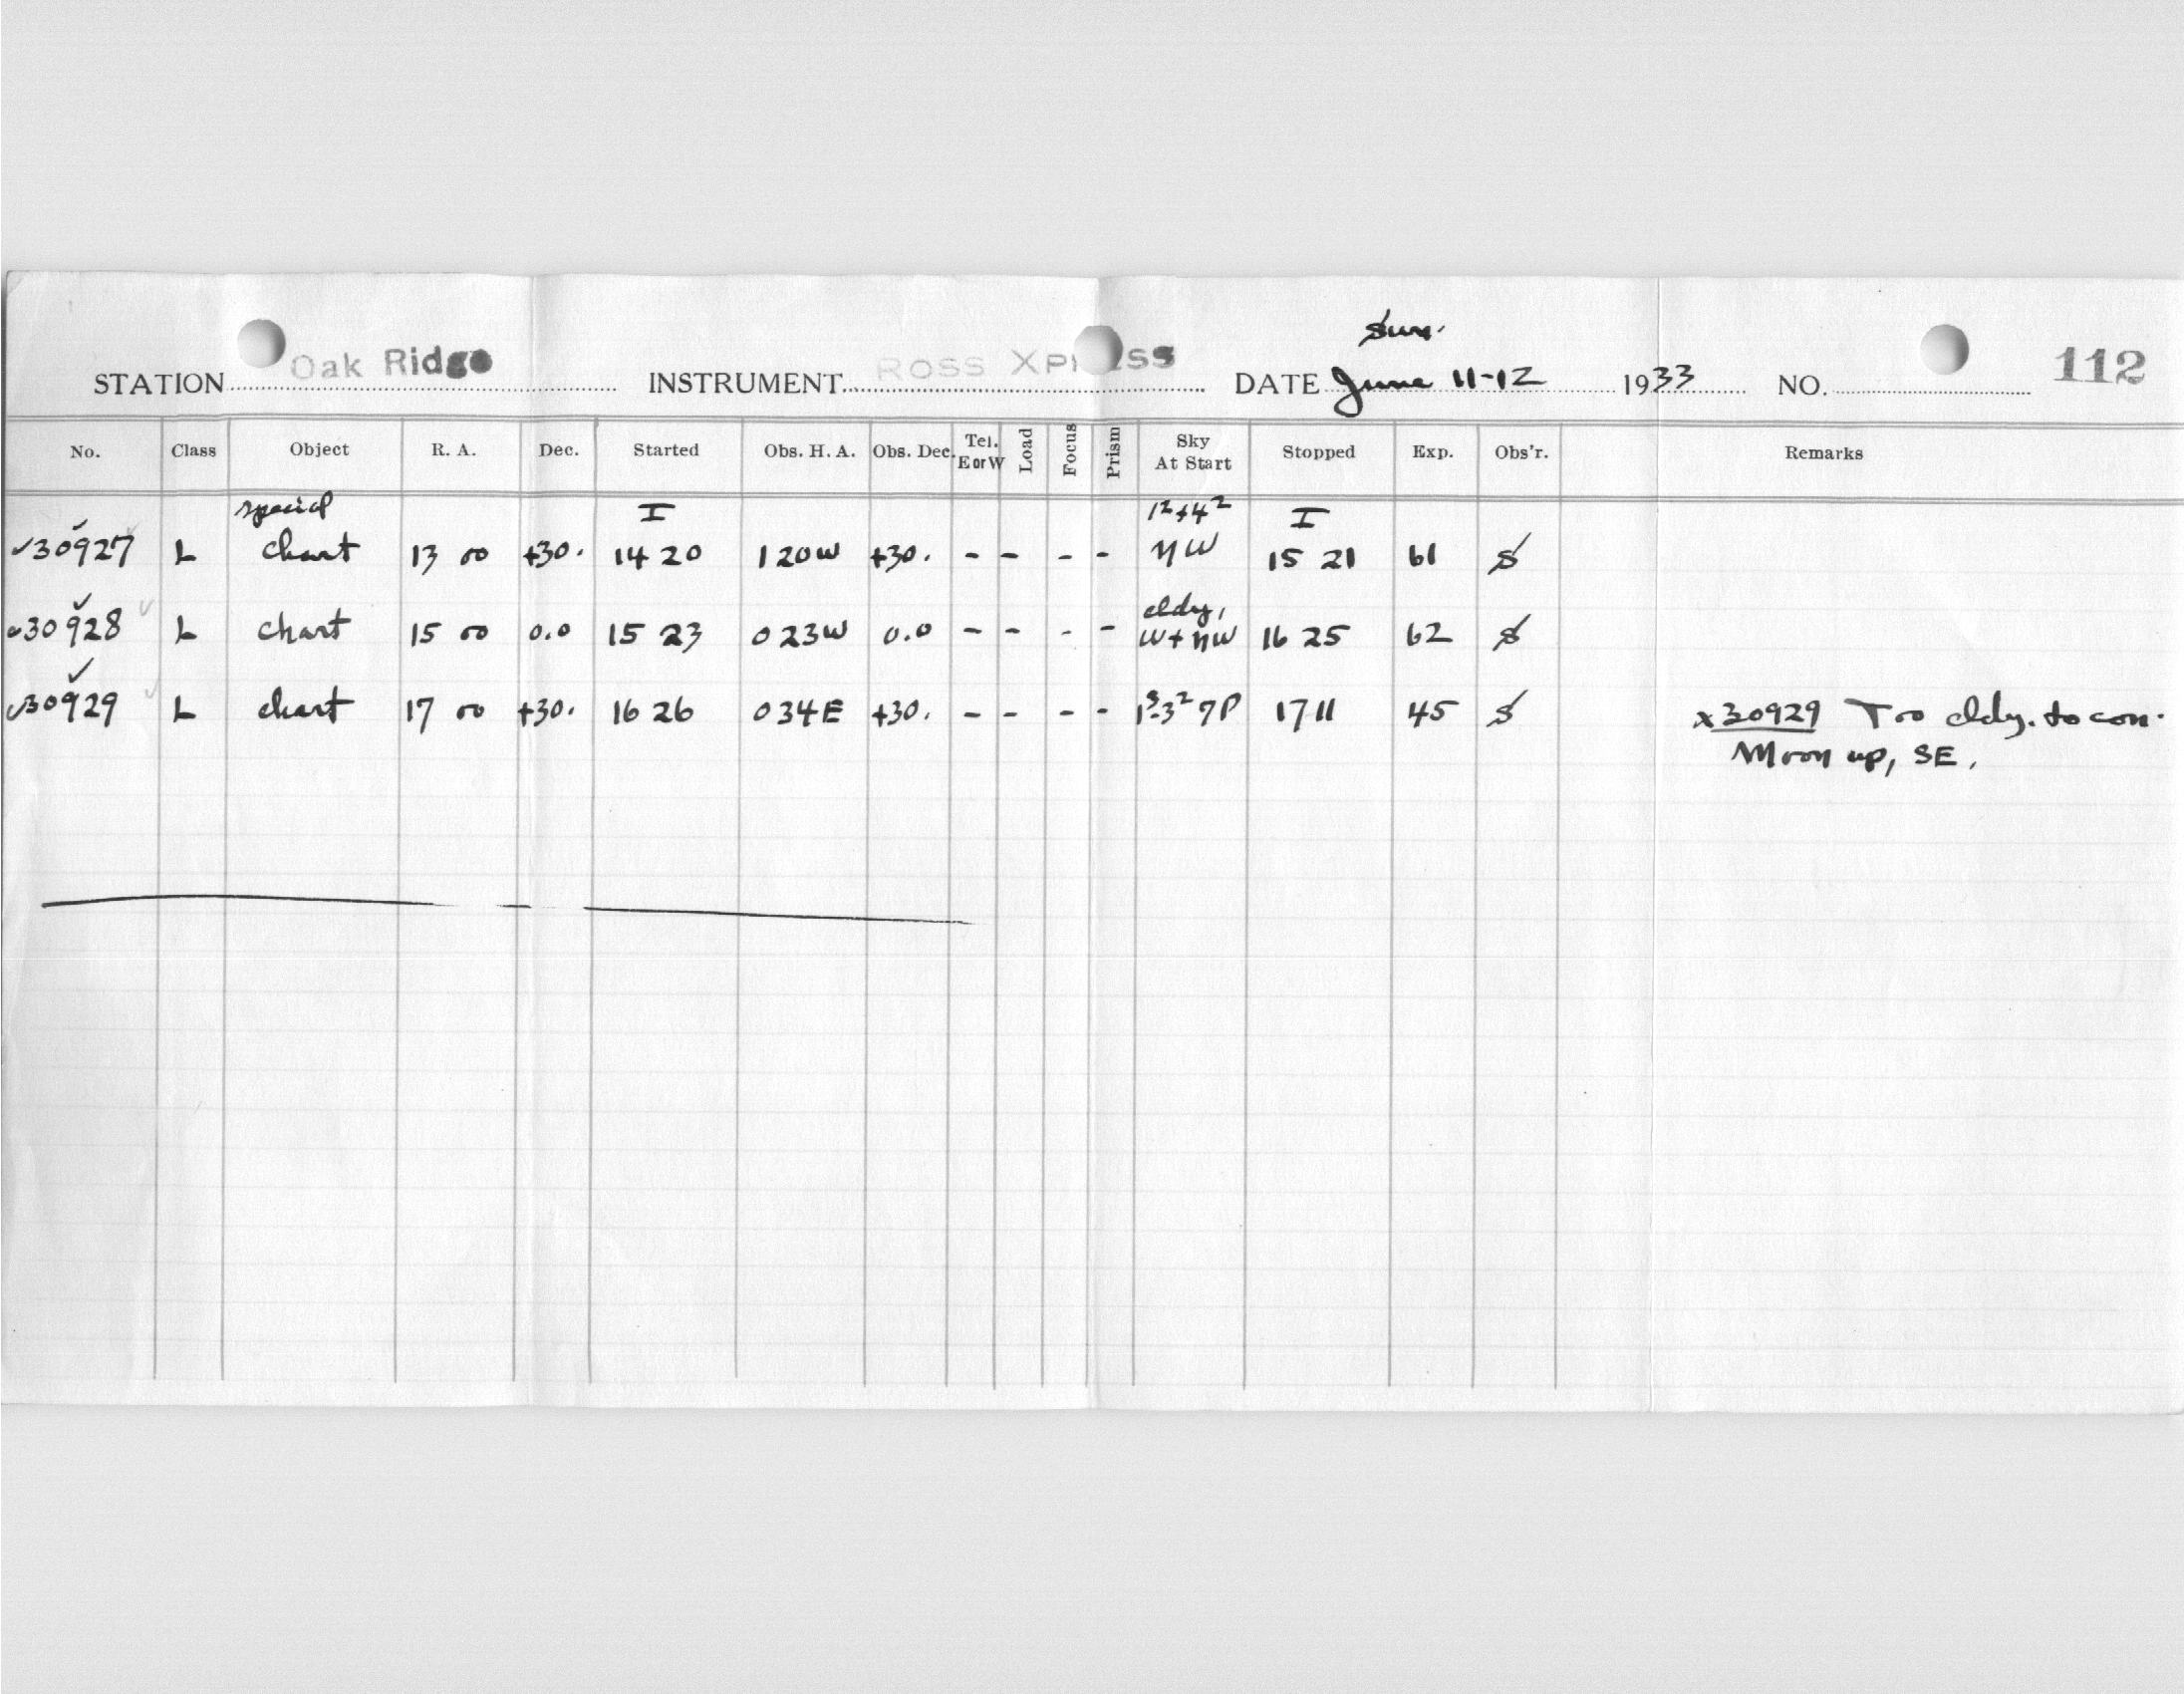 Sun.
STATION Oak Ridge INSTRUMENT ROSS XPRESS DATE June 11-12 1933 NO. 112
No. Class Object R. A. Dec. Started Obs. H. A. Obs. Dec. Tel. E or W Load Focus Prism Sky At Start Stopped Exp. Obs'r. Remarks
special I I
30927 L chart 13 00 +30. 14 20 1 20 W +30. - - - - NW 15 21 61 S
cldy,
30928 L chart 15 00 0.0 15 23 0 23 W 0.0 - - - - W + NW 16 25 62 S
30929 L chart 17 00 +30. 16 26 0 34 E +30. - - - - 17 11 45 S x30929 Too cldy. to con.
Moon up, SE.